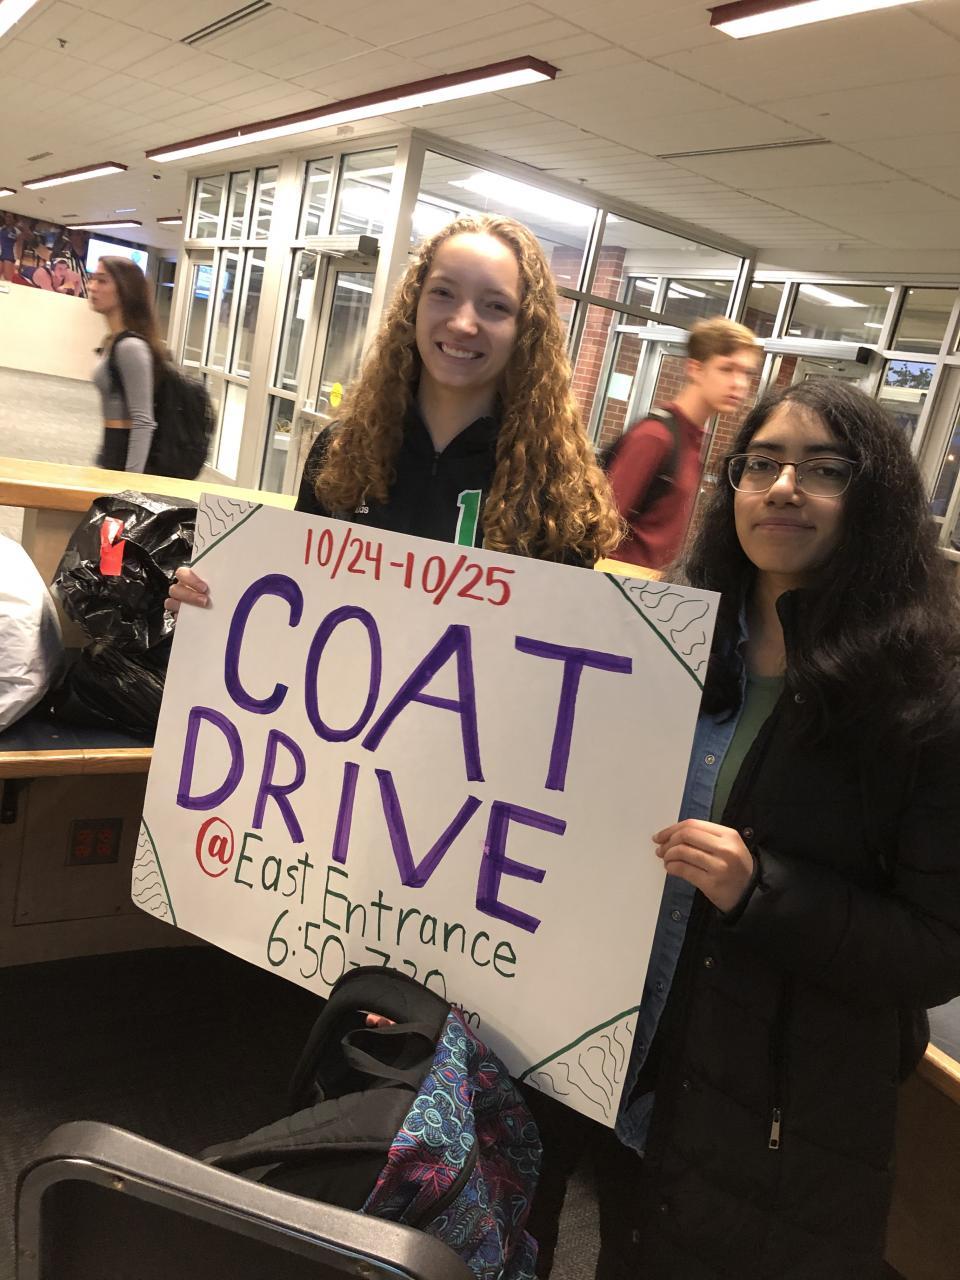 10/24-10/25
COAT
DRIVE
@East Entrance
6:50-7:20am